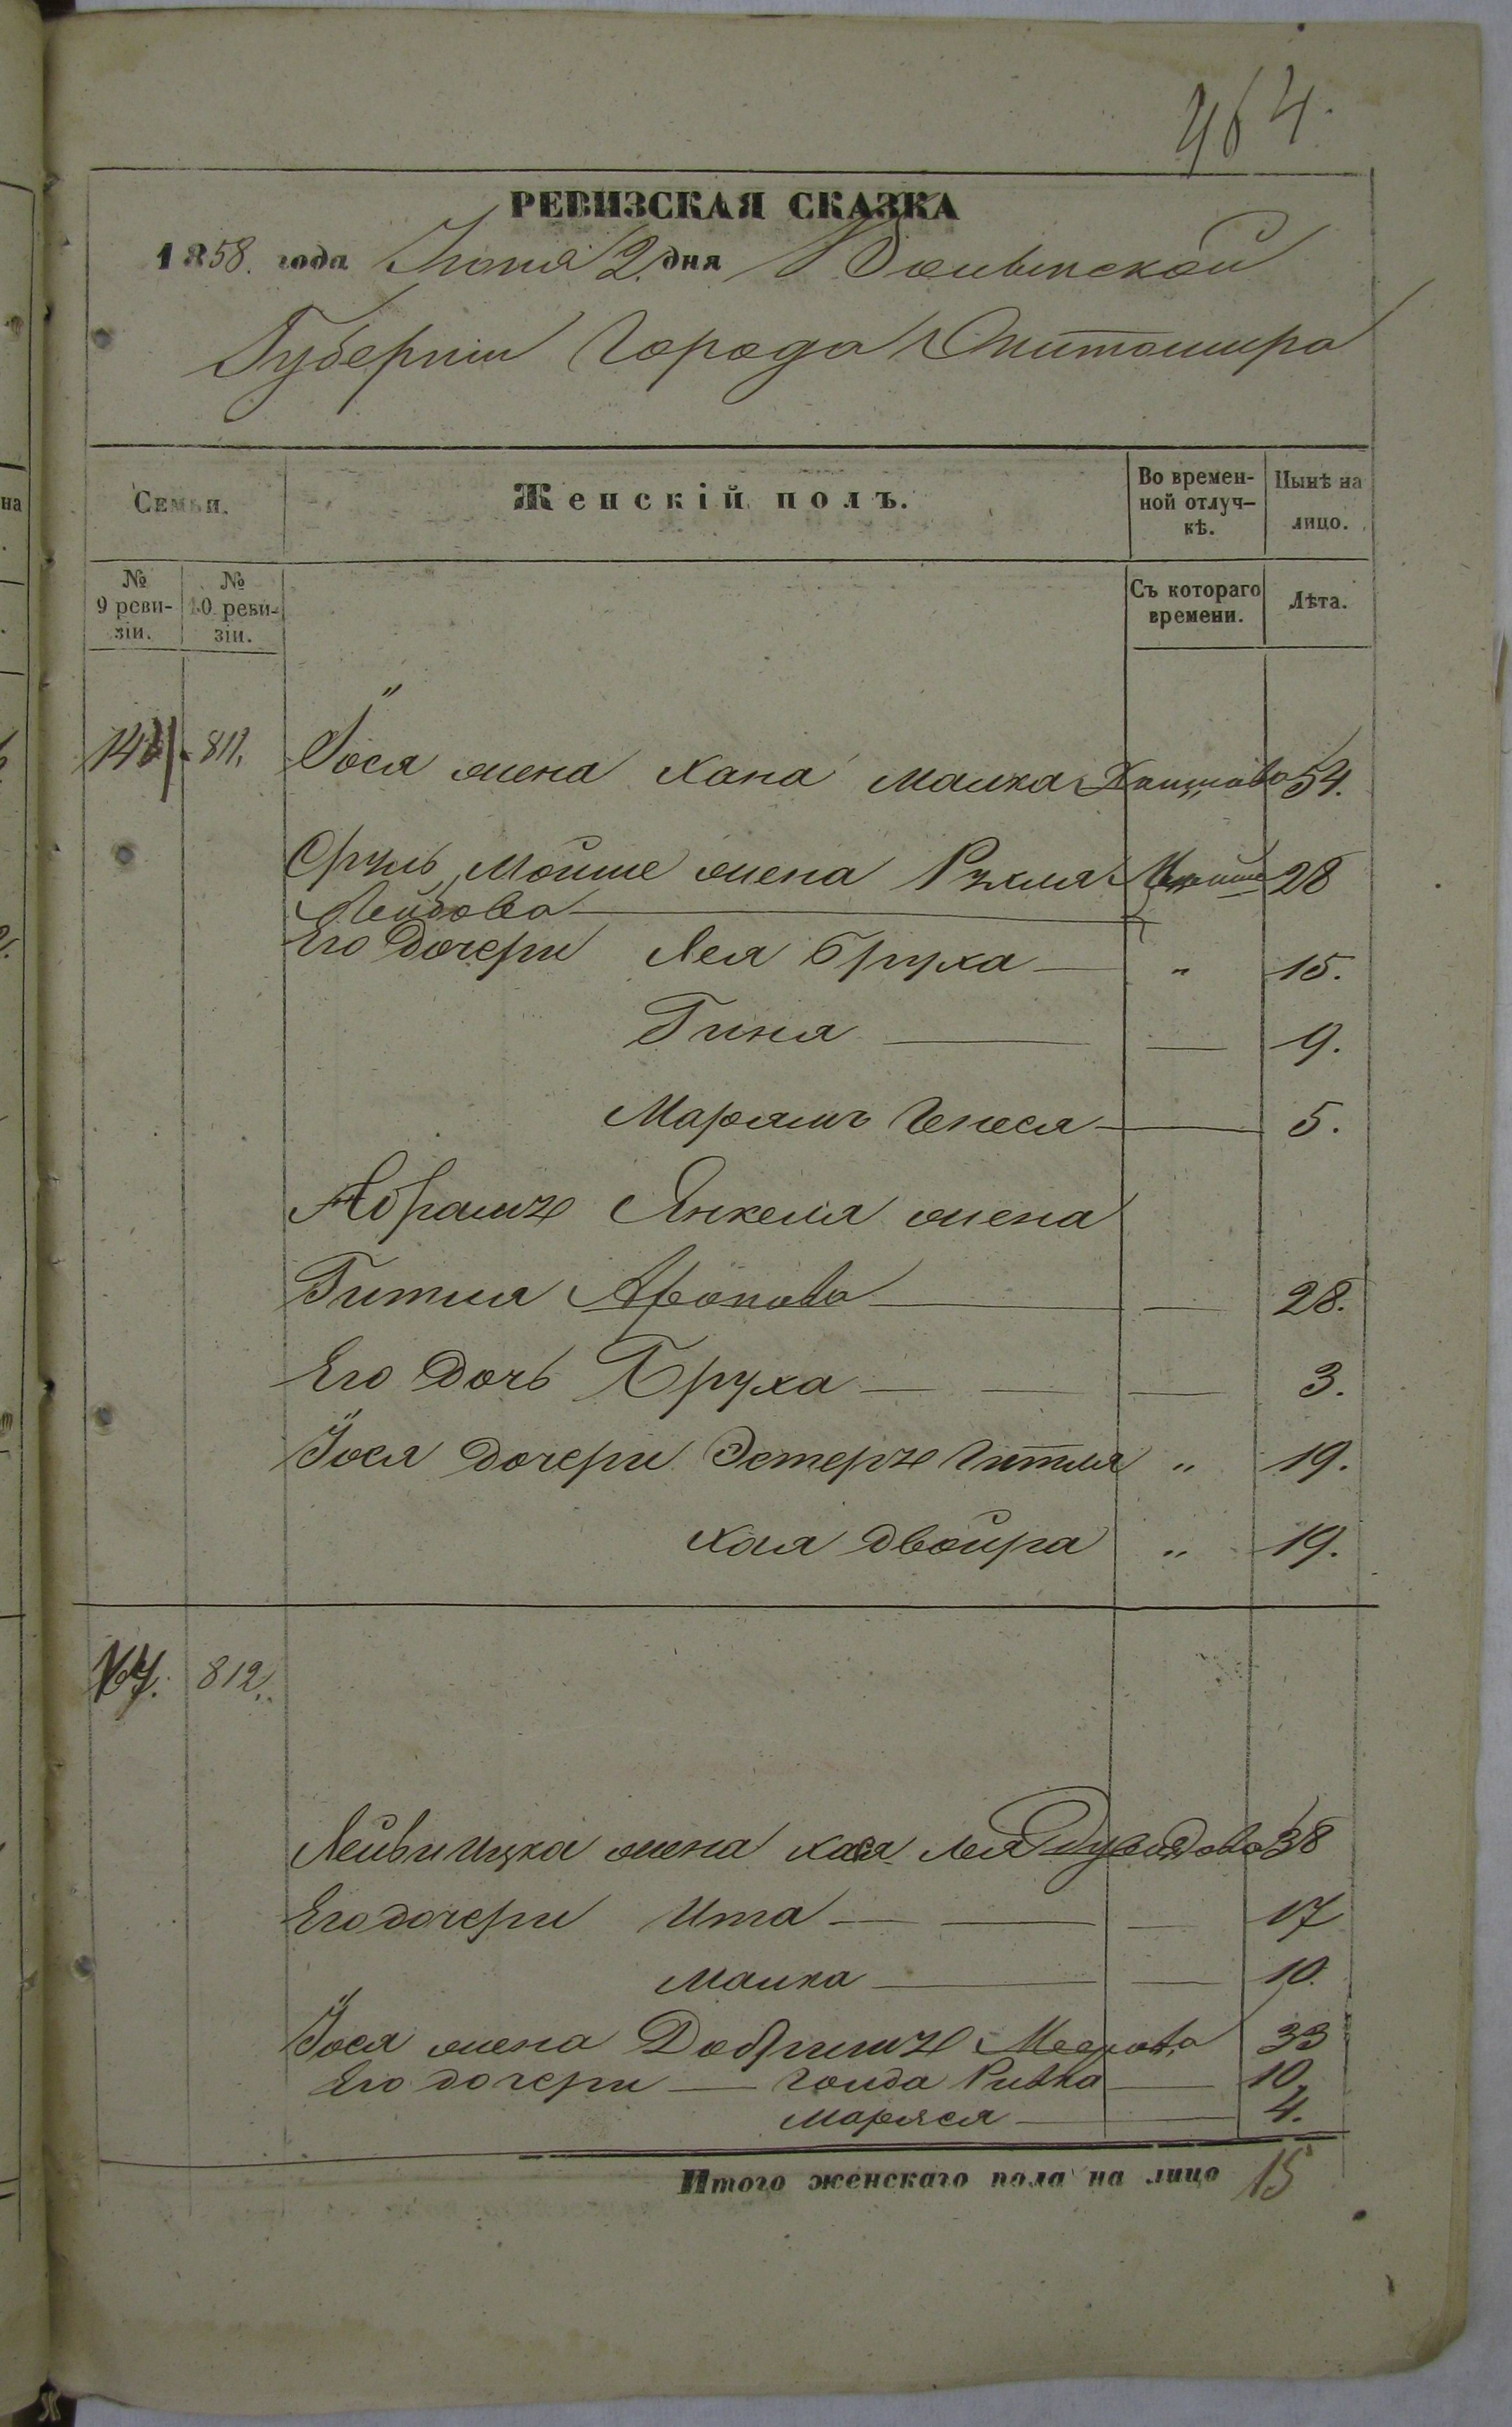 464.
РЕВИЗСКАЯ СКАЗКА
1858. года Июня 2. дня Волынской
Губерніи Города Житомира
Семьи. Женскій полъ. Во времен-ной отлуч-кѣ. Нынѣ на лицо.
№ 9 реви-зіи. № 10 реви-зіи. Съ котораго времени. Лѣта.
811. Іося жена Хана Малка 54.
Сруль Мойше жена Рухля 28
Лейбова
Его дочери Лея Бруха " 15.
Гиня 9.
Марьямъ Генеся 5.
Абрамъ Янкеля жена
Гитля Аронова 28.
Его дочь Бруха 3.
Іося дочери Эстеръ Гитля " 19.
Хая Двойра " 19.
812.
Лейви Ицка жена Хася Лея 38
Его дочери Ита 17
Малка 10.
Іося жена Добришъ Меерова 33
Его дочери Голда Ривка 10.
Маряся 4.
Итого женскаго пола на лицо 15